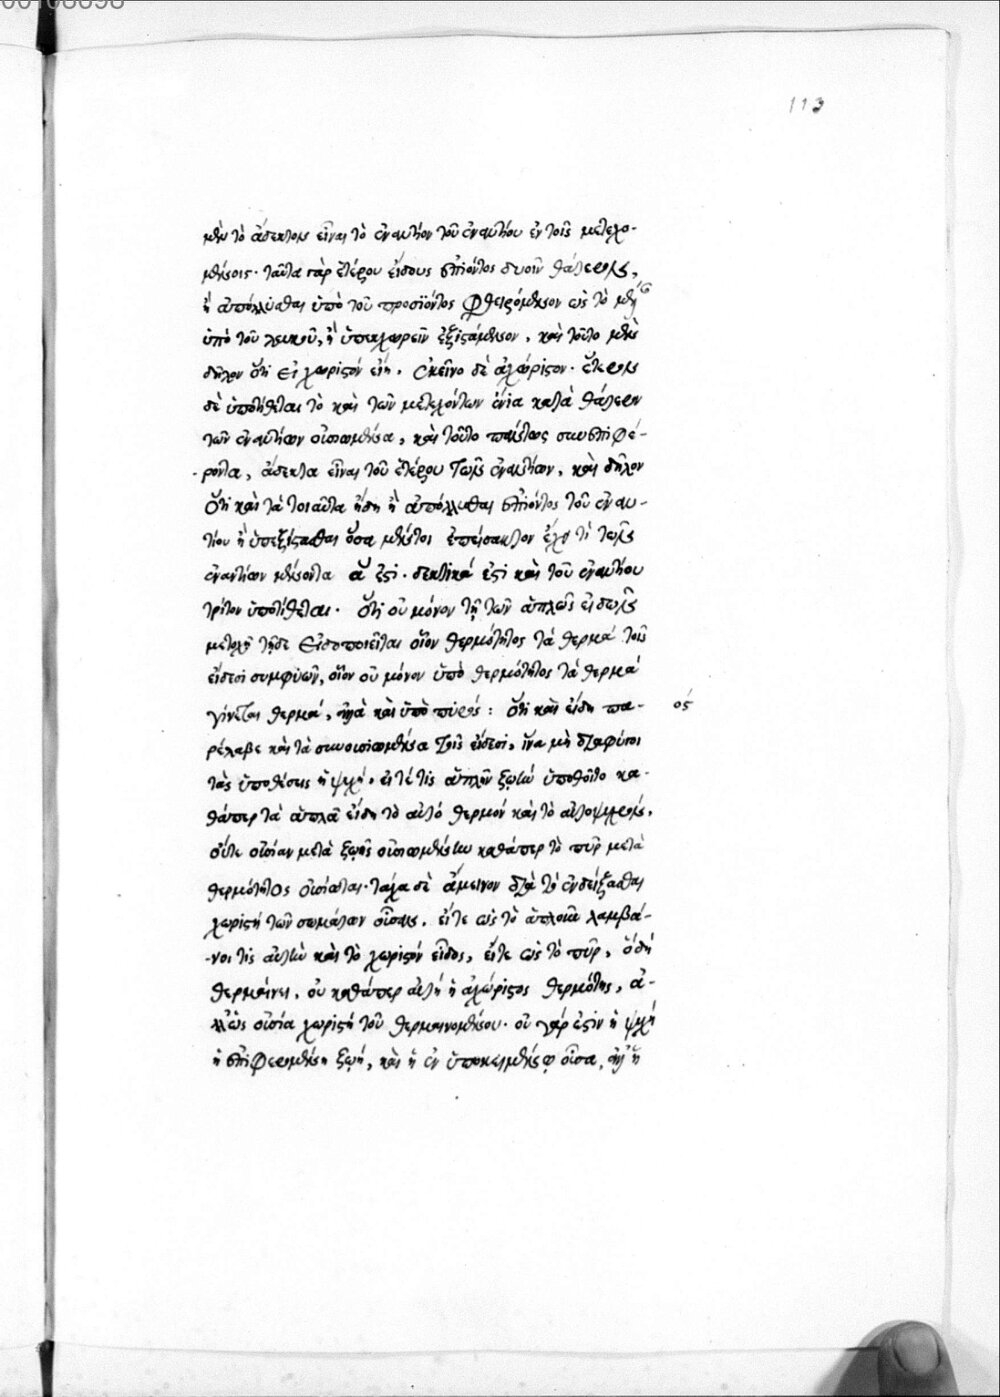 113
μὲν τὸ ἄδεκτον εἶναι τὸ ἐναντίον τοῦ ἐναντίου ἐν τοῖς μετεχο-
μένοις· ταῦτα γὰρ ἑτέρου εἴδους ἐπιόντος δυοῖν θάτερον,
ἢ ἀπόλλυσθαι ὑπὸ τοῦ προσϊόντος φθειρόμενον ὡς τὸ
ὑπὸ τοῦ λευκοῦ, ἢ ὑπεκχωρεῖν ἐξιστάμενον, καὶ τοῦτο μὲν
δῆλον ὅτι εἰ χωριστόν εἴη. ἐκεῖνο δὲ ἀχώριστον· δεύτερον
δὲ ὑποτίθεται τὸ καὶ τῶν μετεχόντων ἐνία κατὰ θάτερον
τῶν ἐναντίων οὐσιωμένα, καὶ τοῦτο πάντως συνεπιφέ-
ροντα, ἄδεκτα εἶναι τοῦ ἑτέρου τῶν ἐναντίων, καὶ δῆλον
ὅτι καὶ τὰ τοιαῦτα ἤδη ἢ ἀπόλλυσθαι ἐπιόντος τοῦ ἐναν-
τίου ἢ ὑπεξίστασθαι ὅσα μέντοι ἐπείσακτον ἔχει τι τῶν
ἐναντίων μένοντα ἅ ἐστι. δεκτικά ἐστι καὶ τοῦ ἐναντίου
τρίτον ὑποτίθεται. ὅτι οὐ μόνον τῇ τῶν ἁπλῶς εἰδῶν
μετοχῇ τῇδε εἰδοποιεῖται οἷον θερμότητος τὰ θερμά τοῖς
εἴδεσι συμφύων, οἷον οὐ μόνον ὑπὸ θερμότητος τὰ θερμά
γίνεται θερμά, ἀλλὰ καὶ ὑπὸ πυρός: ὅτι καὶ εἴδη πα- ος
ρέλαβε καὶ τὰ συνουσιωμένα τοῖς εἴδεσι, ἵνα μὴ διαφύγοι
τὰς ὑποθέσεις ἡ ψυχή. εἴτέ τις ἁπλῆν ζωὴν ὑποθοῖτο κα-
θάπερ τὰ ἁπλᾶ εἴδη τὸ αὐτό θερμόν καὶ τὸ αὐτοψυχρόν.
οὔτε οὐσίαν μετὰ ζωῆς οὐσιωμένην καθάπερ τὸ πῦρ μετὰ
θερμότητος οὐσίωται· τάχα δὲ ἄμεινον διὰ τὸ ἐνδείξασθαι
χωριστή τῶν σωμάτων οὖσαν. εἴτε ὡς τὸ ἁπλοῦν λαμβά-
νοι τις αὐτὴν καὶ τὸ χωριστόν εἶδος, εἴτε ὡς τὸ πῦρ, ὅ δὴ
θερμαίνει. οὐ καθάπερ αὐτή ἡ ἀχώριστος θερμότης, ἀ-
λλ' ὡς οὐσία χωριστή τοῦ θερμαινομένου· οὐ γάρ ἐστιν ἡ ψυχή
ἡ ἐπιφερομένη ζωή, καὶ ἡ ἐν ὑποκειμένῳ οὖσα, ἀλλ' ἡ